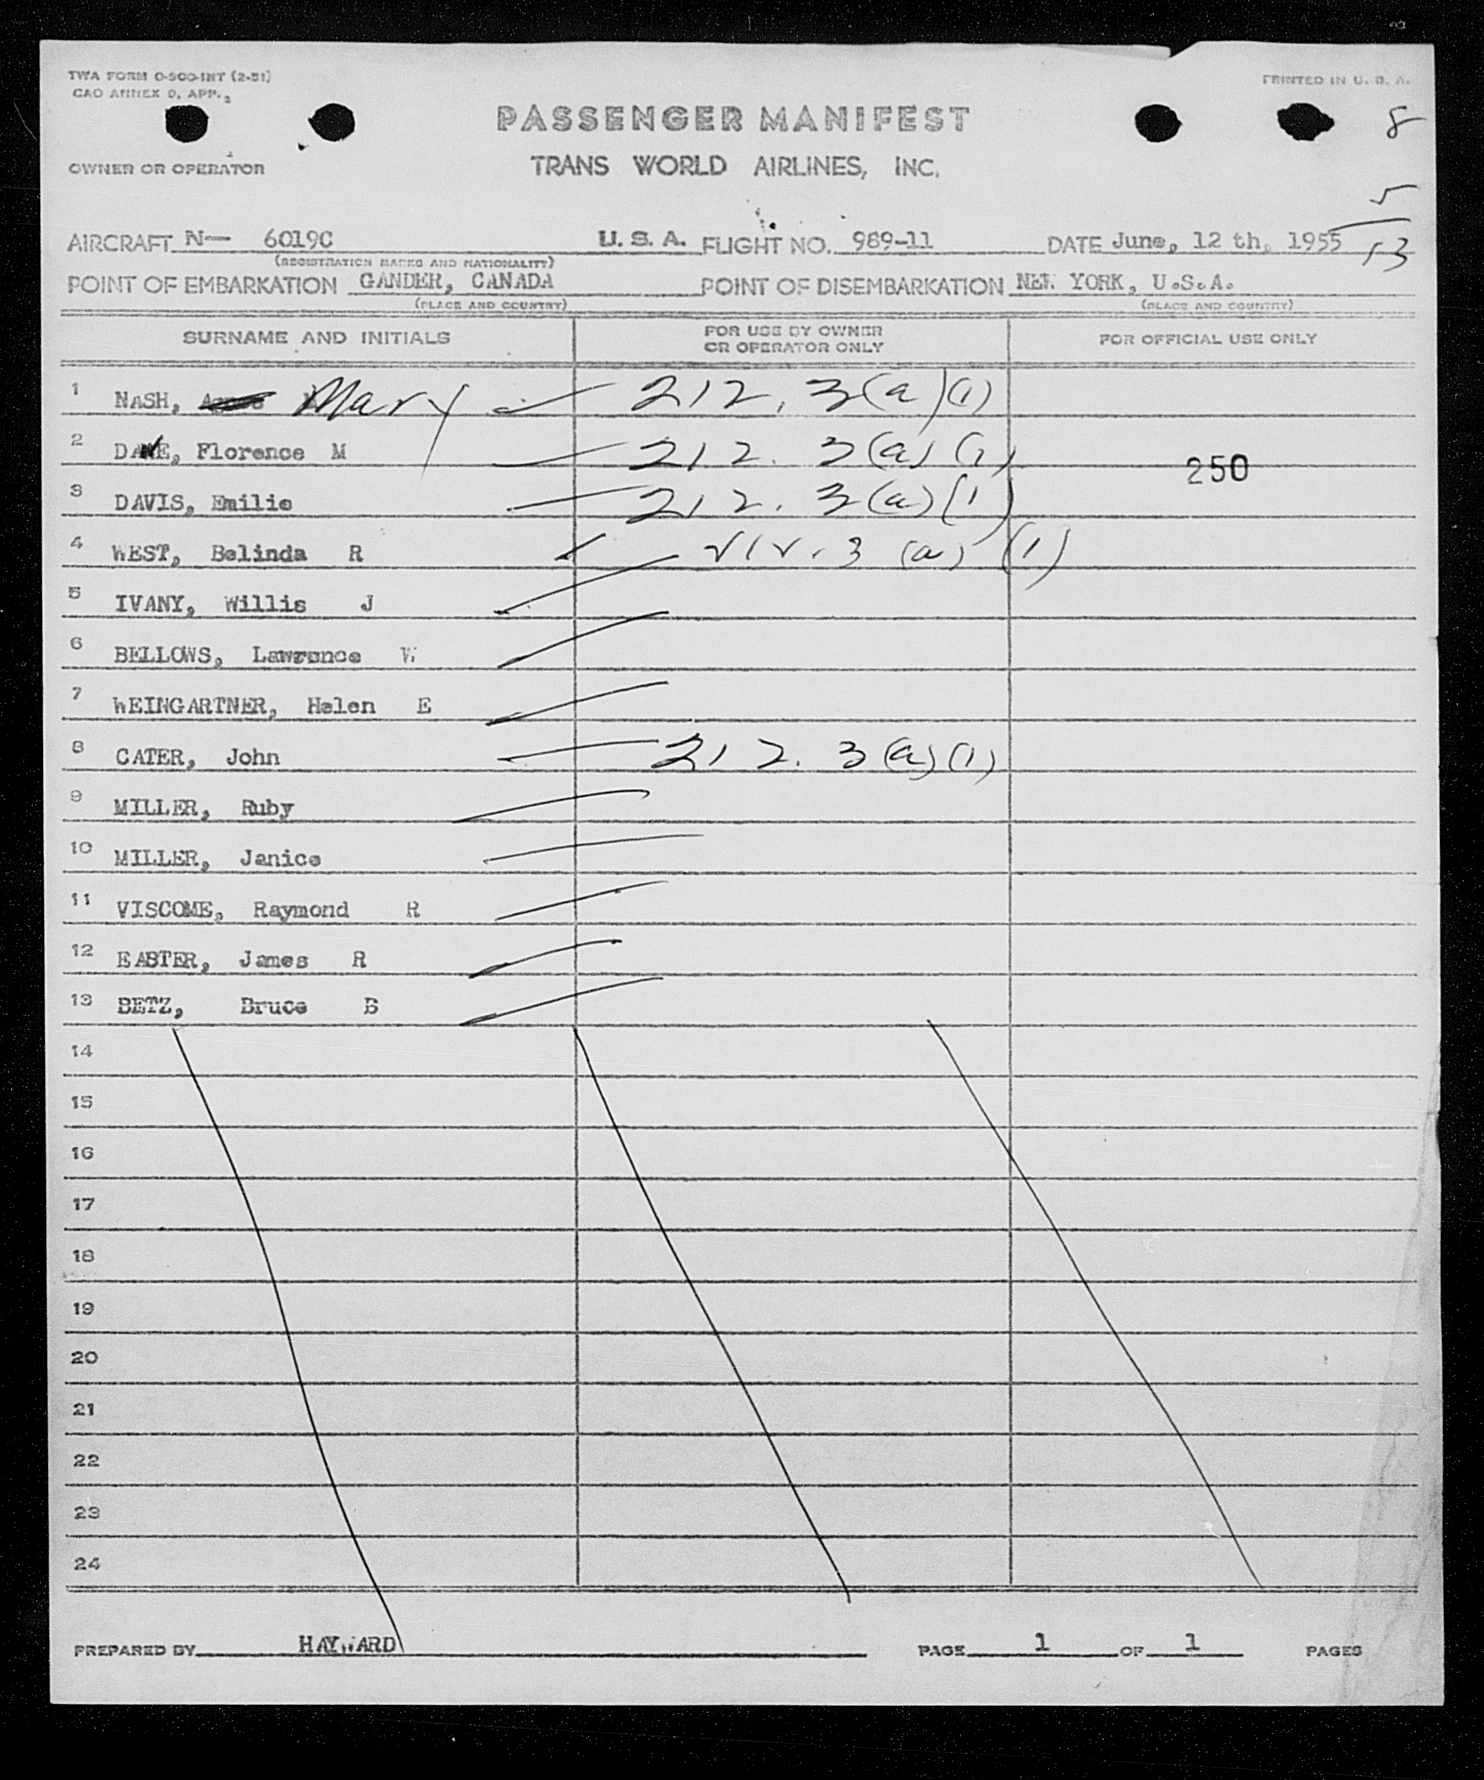 TWA FORM O-900-INT (2-51)
CAO ANNEX D, APP. 2
PRINTED IN U. S. A.
PASSENGER MANIFEST
8
OWNER OR OPERATOR
TRANS WORLD AIRLINES, INC.
5
AIRCRAFT N— 6019C U.S.A. FLIGHT NO. 989-11 DATE June, 12 th, 1955
13
(REGISTRATION MARKS AND NATIONALITY)
POINT OF EMBARKATION GANDER, CANADA POINT OF DISEMBARKATION NEW YORK, U.S.A.
(PLACE AND COUNTRY) (PLACE AND COUNTRY)
SURNAME AND INITIALS FOR USE BY OWNER OR OPERATOR ONLY FOR OFFICIAL USE ONLY
1 NASH, Mary 212.3(a)(1)
2 DAWE, Florence M 212.3(a)(1)
250
3 DAVIS, Emilie 212.3(a)(1)
4 WEST, Belinda R 212.3(a)(1)
5 IVANY, Willis J
6 BELLOWS, Lawrence W
7 WEINGARTNER, Helen E
8 CATER, John 212.3(a)(1)
9 MILLER, Ruby
10 MILLER, Janice
11 VISCOME, Raymond R
12 EASTER, James R
13 BETZ, Bruce B
14
15
16
17
18
19
20
21
22
23
24
PREPARED BY HAYWARD PAGE 1 OF 1 PAGES